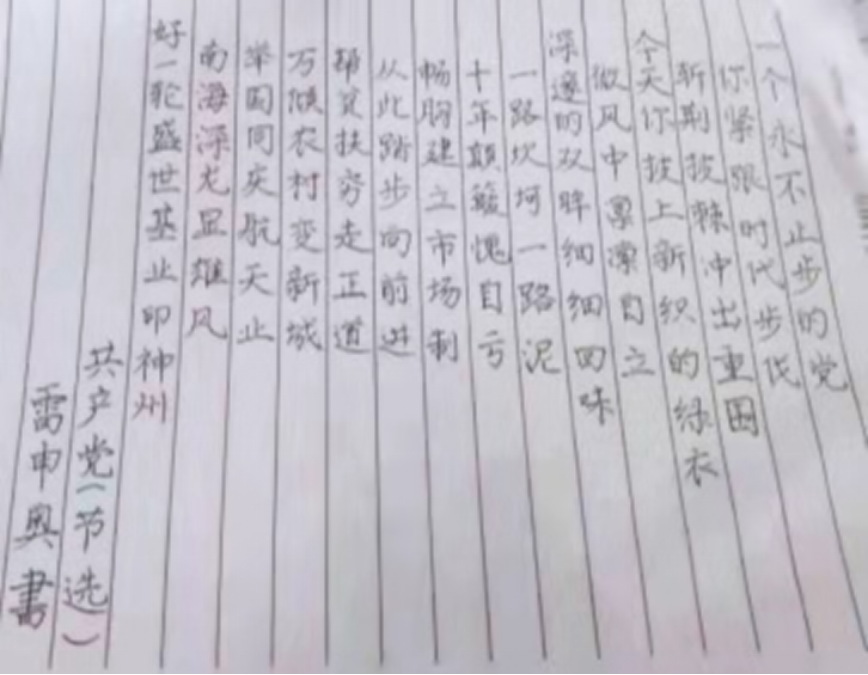 一个永不止步的党
你紧跟时代步伐
斩荆披棘冲出重围
今天你披上新织的绿衣
似风中凛凛自立
深邃的双眸细细回味
一路坎坷一路泥
十年颠簸愧自亏
畅胸建立市场制
从此踏步向前进
帮贫扶穷走正道
万倾农村变新城
举国同庆航天止
南海深尤显雄风
好一轮盛世基止印神州
共产党(节选)
雷申奥書